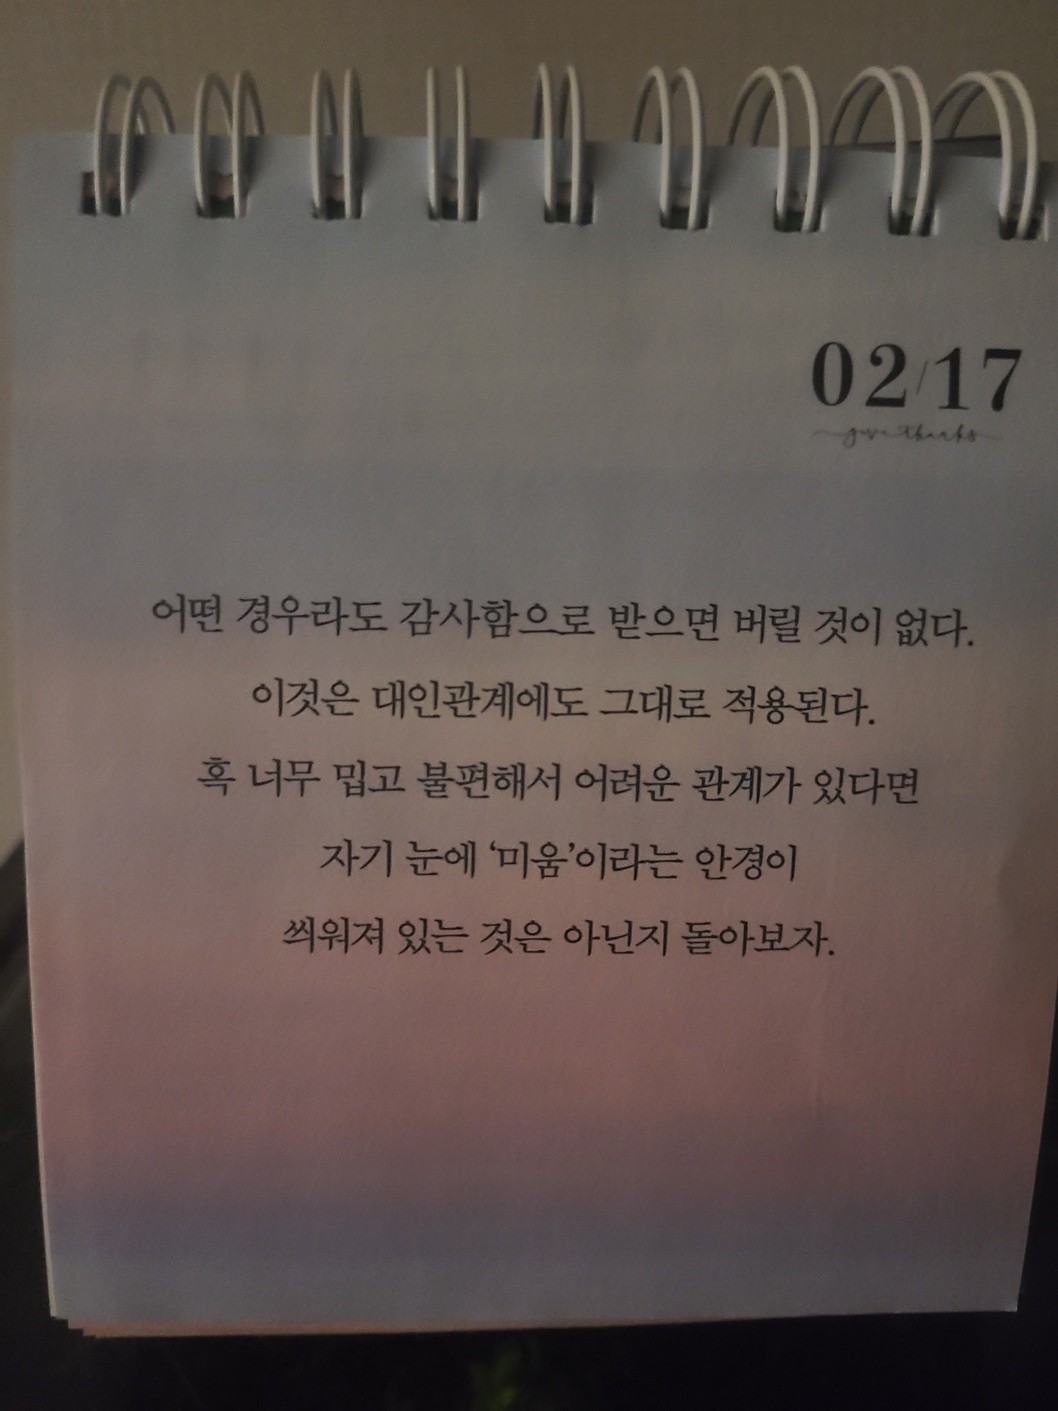 02/17
give thanks
어떤 경우라도 감사함으로 받으면 버릴 것이 없다.
이것은 대인관계에도 그대로 적용된다.
혹 너무 밉고 불편해서 어려운 관계가 있다면
자기 눈에 ‘미움’이라는 안경이
씌워져 있는 것은 아닌지 돌아보자.